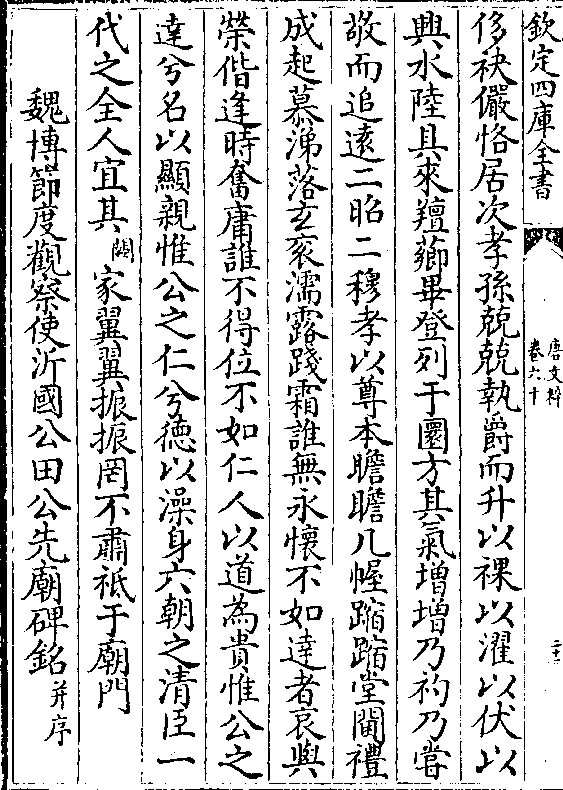 欽定四庫全書
唐文粹
卷六十
二十一
侈袂儼恪居次孝孫兢兢執爵而升以祼以濯以伏以
興水陸具來羶薌畢登列于圜方其氣增增乃礿乃嘗
敬而追遠二昭二穆孝以尊本瞻瞻几幄蹜蹜堂閫禮
成起慕涕落玄衮濡露踐霜誰無永懷不如達者哀與
榮偕逢時奮庸誰不得位不如仁人以道為貴惟公之
達兮名以顯親惟公之仁兮德以澡身六朝之清臣一
代之全人宜其闕家翼翼振振罔不肅祗于廟門
魏博節度觀察使沂國公田公先廟碑銘并序